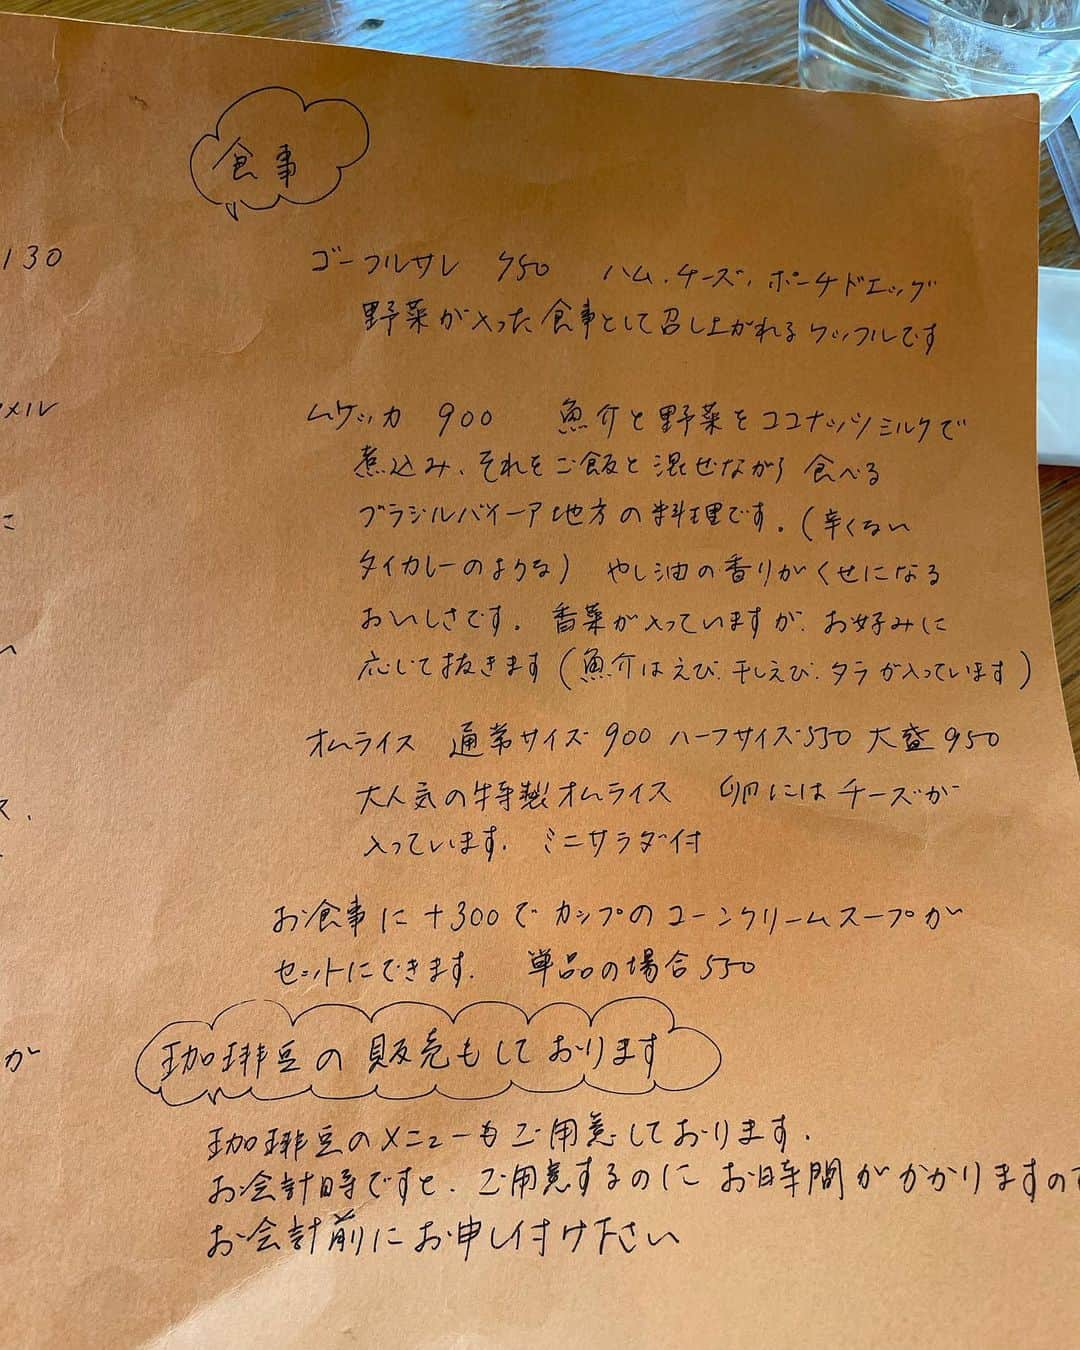 食事
130
ゴーフルサレ 750 ハム、チーズ、ポーチドエッグ
野菜が入った食事として召し上がれるワッフルです
メル
ムケッカ 900 魚介と野菜をココナッツミルクで
煮込み、それをご飯と混ぜながら食べる
ブラジルバイーア地方の料理です。(辛くない
に
タイカレーのような) やし油の香りがくせになる
おいしさです。香菜が入っていますが、お好みに
応じて抜きます(魚介はえび、干しえび、タラが入っています)
オムライス 通常サイズ900 ハーフサイズ550 大盛950
大人気の特製オムライス 卵にはチーズが
入っています。ミニサラダ付
お食事に+300でカップのコーンクリームスープが
セットにできます。 単品の場合550
珈琲豆の販売もしております
が
珈琲豆のメニューもご用意しております。
お会計時ですと、ご用意するのにお時間がかかりますので
お会計前にお申し付け下さい